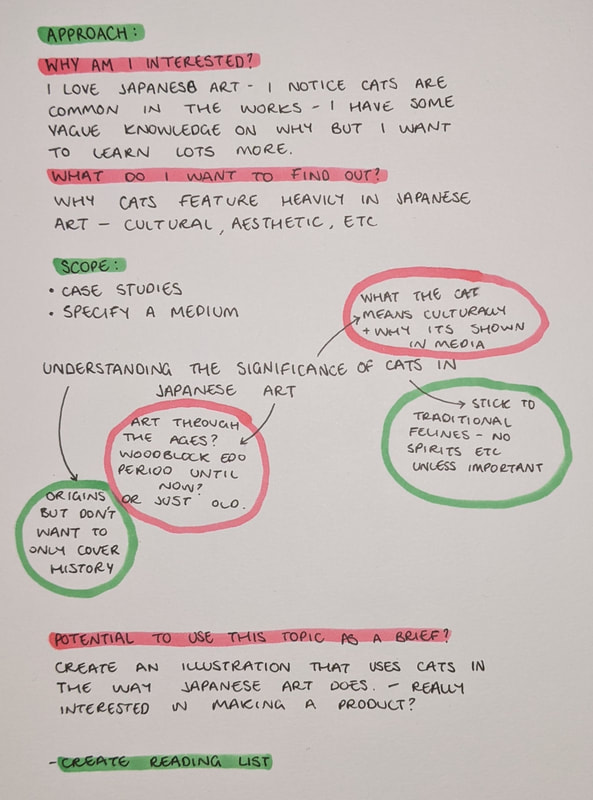 APPROACH:
WHY AM I INTERESTED?
I LOVE JAPANESE ART - I NOTICE CATS ARE
COMMON IN THE WORKS - I HAVE SOME
VAGUE KNOWLEDGE ON WHY BUT I WANT
TO LEARN LOTS MORE.
WHAT DO I WANT TO FIND OUT?
WHY CATS FEATURE HEAVILY IN JAPANESE
ART - CULTURAL, AESTHETIC, ETC
SCOPE:
• CASE STUDIES
• SPECIFY A MEDIUM
WHAT THE CAT
MEANS CULTURALLY
+ WHY ITS SHOWN
IN MEDIA
UNDERSTANDING THE SIGNIFICANCE OF CATS IN
JAPANESE ART
STICK TO
TRADITIONAL
FELINES - NO
SPIRITS ETC
UNLESS IMPORTANT
ART THROUGH
THE AGES?
WOODBLOCK EDO
PERIOD UNTIL
NOW?
OR JUST OLD.
ORIGINS
BUT DON'T
WANT TO
ONLY COVER
HISTORY
POTENTIAL TO USE THIS TOPIC AS A BRIEF?
CREATE AN ILLUSTRATION THAT USES CATS IN
THE WAY JAPANESE ART DOES. - REALLY
INTERESTED IN MAKING A PRODUCT?
- CREATE READING LIST